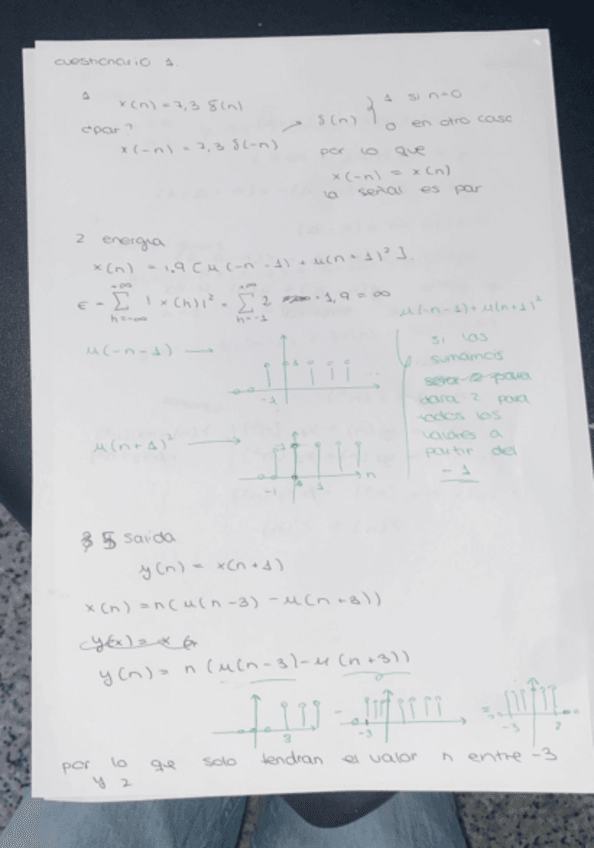 cuestionario 1.
1
x(n) = 7,3 δ(n)
¿par?
x(-n) = 7,3 δ(-n)
δ(n) } 1 si n=0
0 en otro caso
por lo que
x(-n) = x(n)
la señal es par
2 energia
x(n) = 1,9 [μ(-n-1) + μ(n+1)²].
ϵ = Σ |x(n)|² = Σ 2 · 1,9 = ∞
+∞ n=-∞ +∞ n=-1
μ(-n-1) + μ(n+1)²
si las
sumamos
dara 2 para
todos los
valores a
partir del
-1
μ(-n-1) →
-1 1
μ(n+1)² →
-1 1 n
5 salida
y(n) = x(n+1)
x(n) = n(μ(n-3) - μ(n+3))
y(n) = n (μ(n-3) - μ(n+3))
3 - -3 = -3 2
por lo que solo tendran el valor n entre -3
y 2